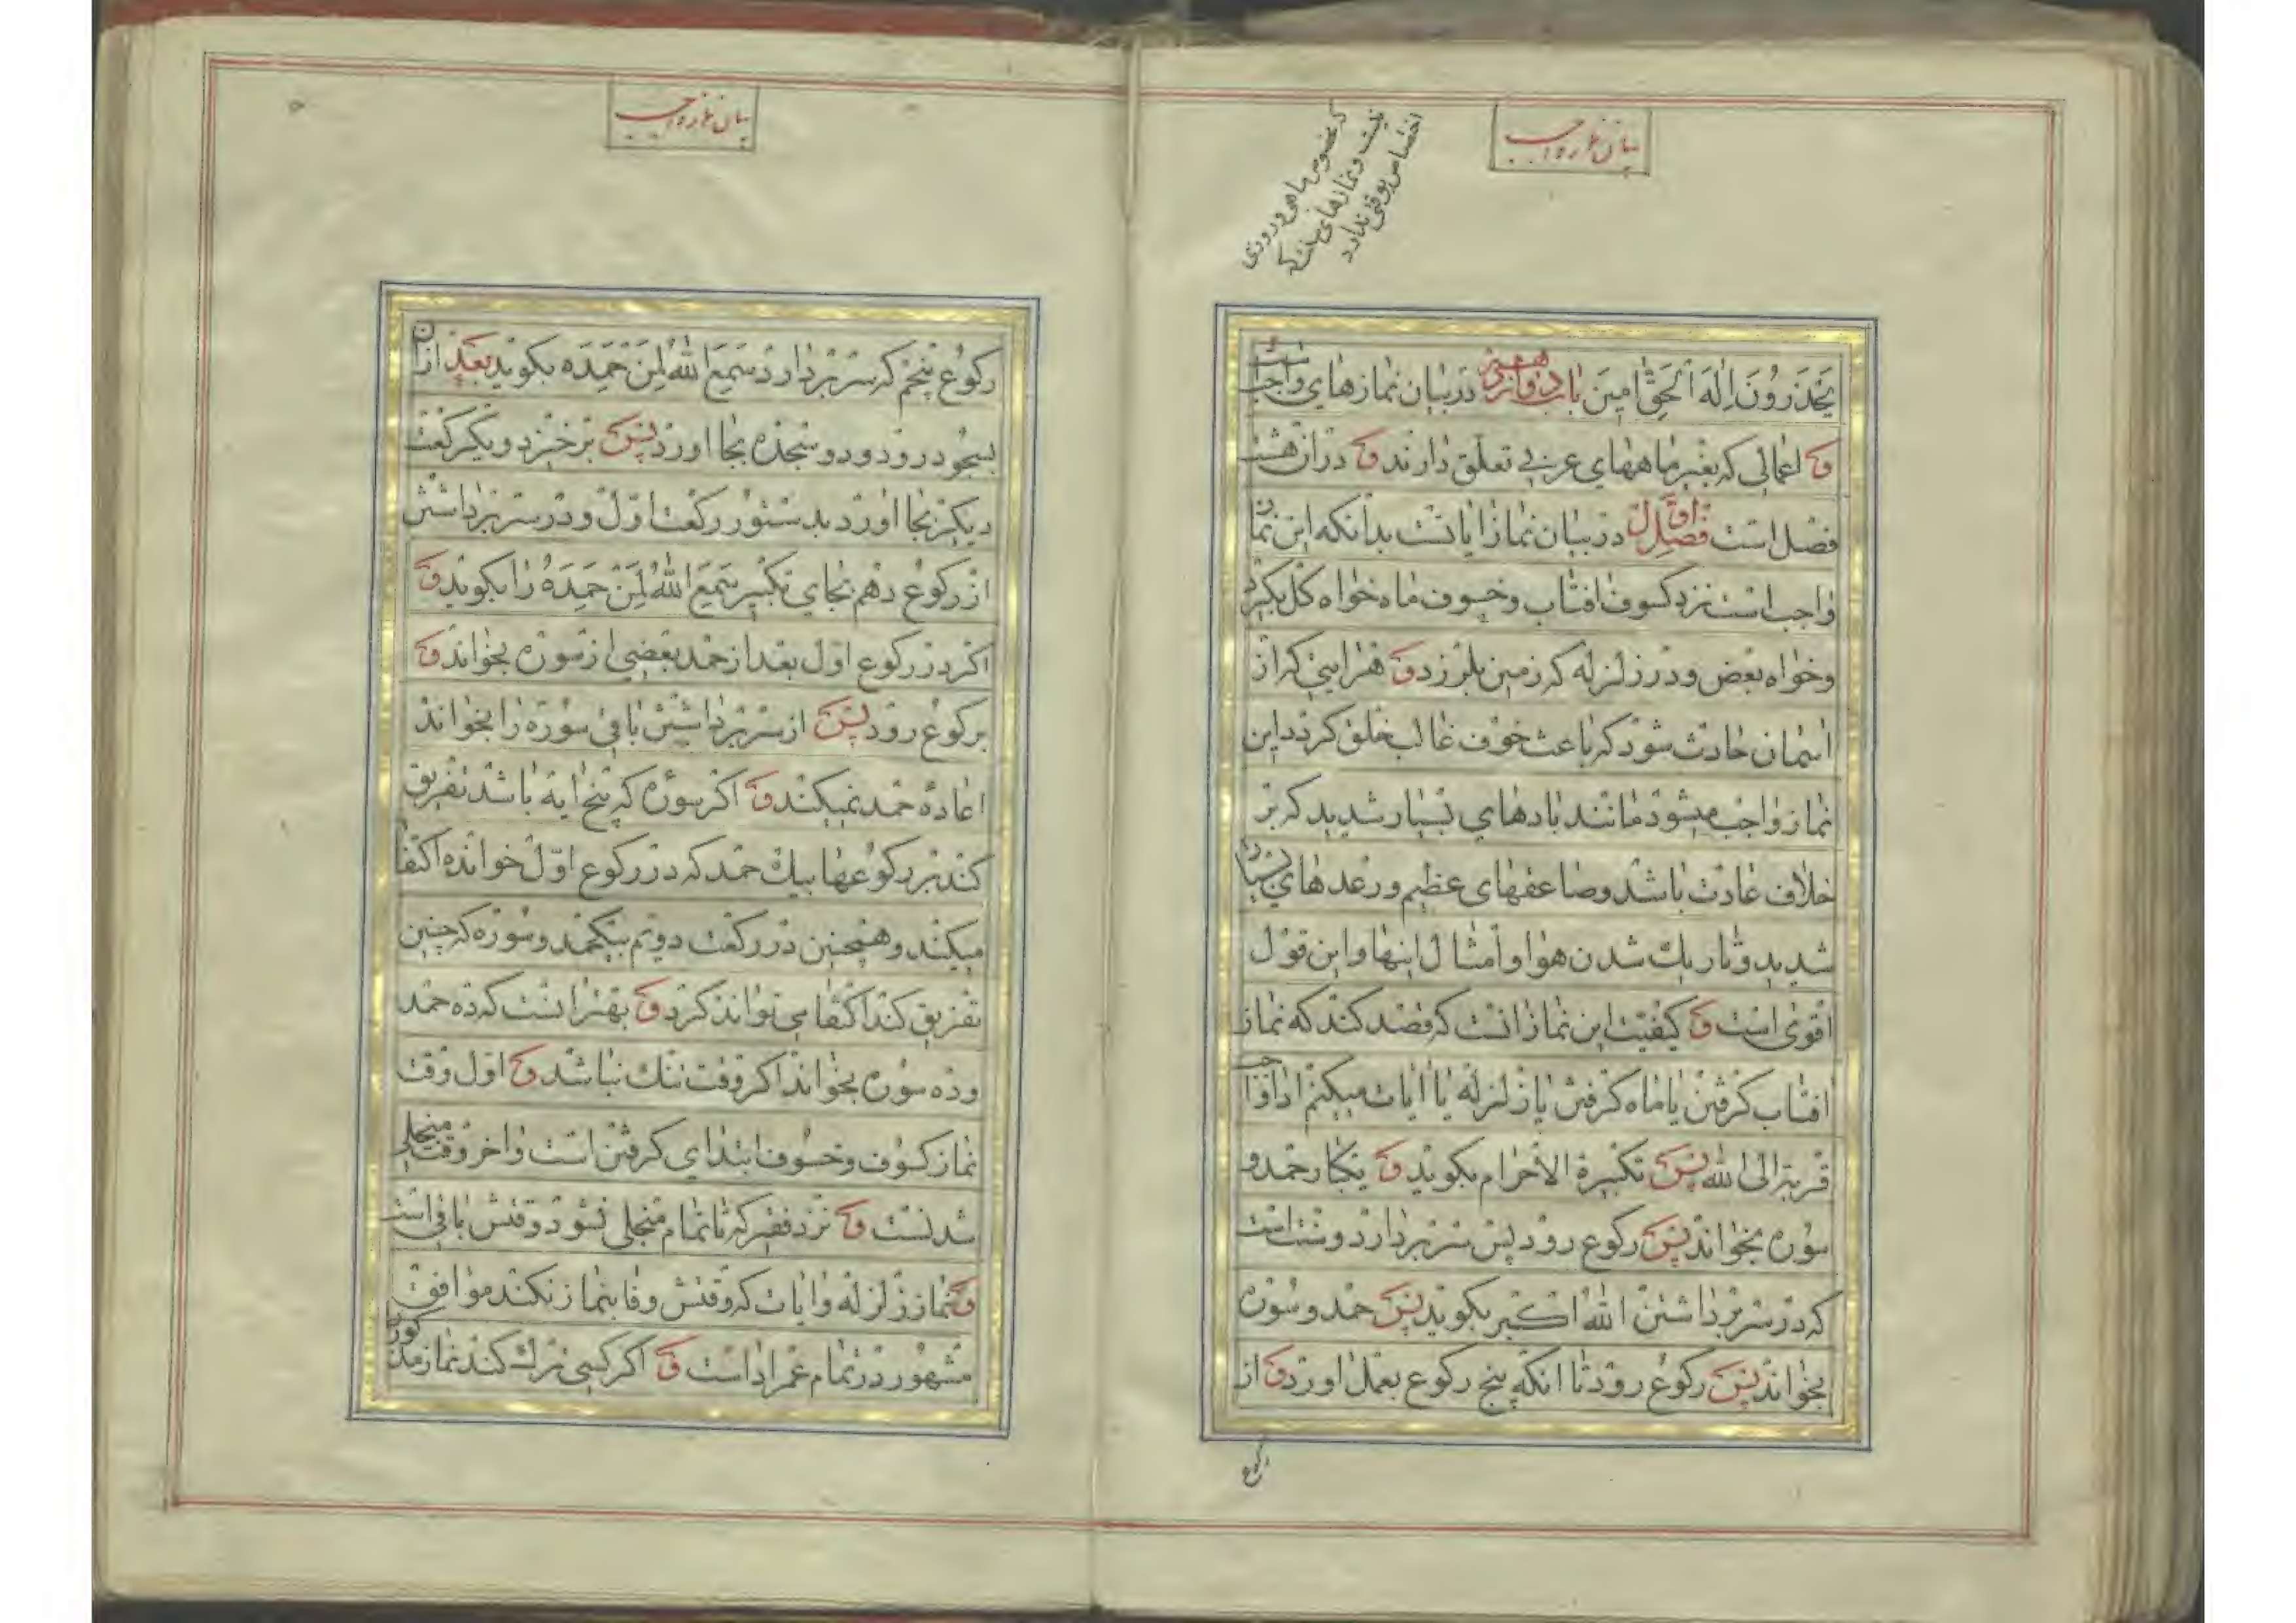 بیان نماز واجب
که مخصوص ماهی و روزی
نیست و نمازهای سنت که
اختصاص بوقتی ندارد
یَحْذَرُونَ اِلٰهَ الْحَقِّ امِینَ باب دوازدهم در بیان نمازهای واجب است
و اعمالی که بغیر ماههای عربی تعلق دارند و دران هشت
فصل است فصل اول در بیان نماز ایاتست بدانکه این نماز
واجب است نزد کسوف افتاب و خسوف ماه خواه کل بکیرد
و خواه بعض و در زلزله که زمین بلرزد و هر ایتی که از
اسمان حادث شود که باعث خوف غالب خلق کردد این
نماز واجب میشود مانند بادهای بسیار شدید که بر
خلاف عادت باشد و صاعقهای عظیم و رعدهای بسیار
شدید و تاریک شدن هوا و امثال اینها و این قول
اقوی است و کیفیت این نماز انست که قصد کند که نماز
افتاب کرفتن یا ماه کرفتن یا زلزله یا ایات میکنم ادا واجب
قربة الی الله پس تکبیرة الاحرام بکوید و یکبار حمد و
سوره بخواند پس رکوع رود پس سر بردارد و سنت است
که در سر برداشتن الله اکبر بکوید پس حمد و سوره
بخواند پس رکوع رود تا انکه پنج رکوع بعمل اورد و از
رکوع
بیان نماز واجب
رکوع پنجم که سر بردارد سَمِعَ اللهُ لِمَنْ حَمِدَه بکوید بعد ازان
بسجود رود و دو سجده بجا اورد پس برخیزد و یکرکعت
دیکر بجا اورد بدستور رکعت اول و در سر برداشتن
از رکوع دهم بجای تکبیر سَمِعَ اللهُ لِمَنْ حَمِدَهُ را بکوید و
اکر در رکوع اول بعد از حمد بعضی از سوره بخواند و
برکوع رود پس از سر برداشتن باقی سوره را بخواند
اعاده حمد نمیکند و اکر سوره که پنج ایه باشد تفریق
کند بر رکوعها بیک حمد که در رکوع اول خوانده اکتفا
میکند و همچنین در رکعت دویم بیکحمد و سوره که چنین
تفریق کند اکتفا می تواند کرد و بهتر انست که ده حمد
و ده سوره بخواند اکر وقت تنک نباشد و اول وقت
نماز کسوف و خسوف ابتدای کرفتن است و اخر وقت منجلی
شدنست و نزد فقیر که تا تمام منجلی نشود وقتش باقی است
و نماز زلزله و ایات که وقتش وفا بنماز نکند موافق
مشهور در تمام عمر اداست و اکر کسی ترک کند نماز مذکور